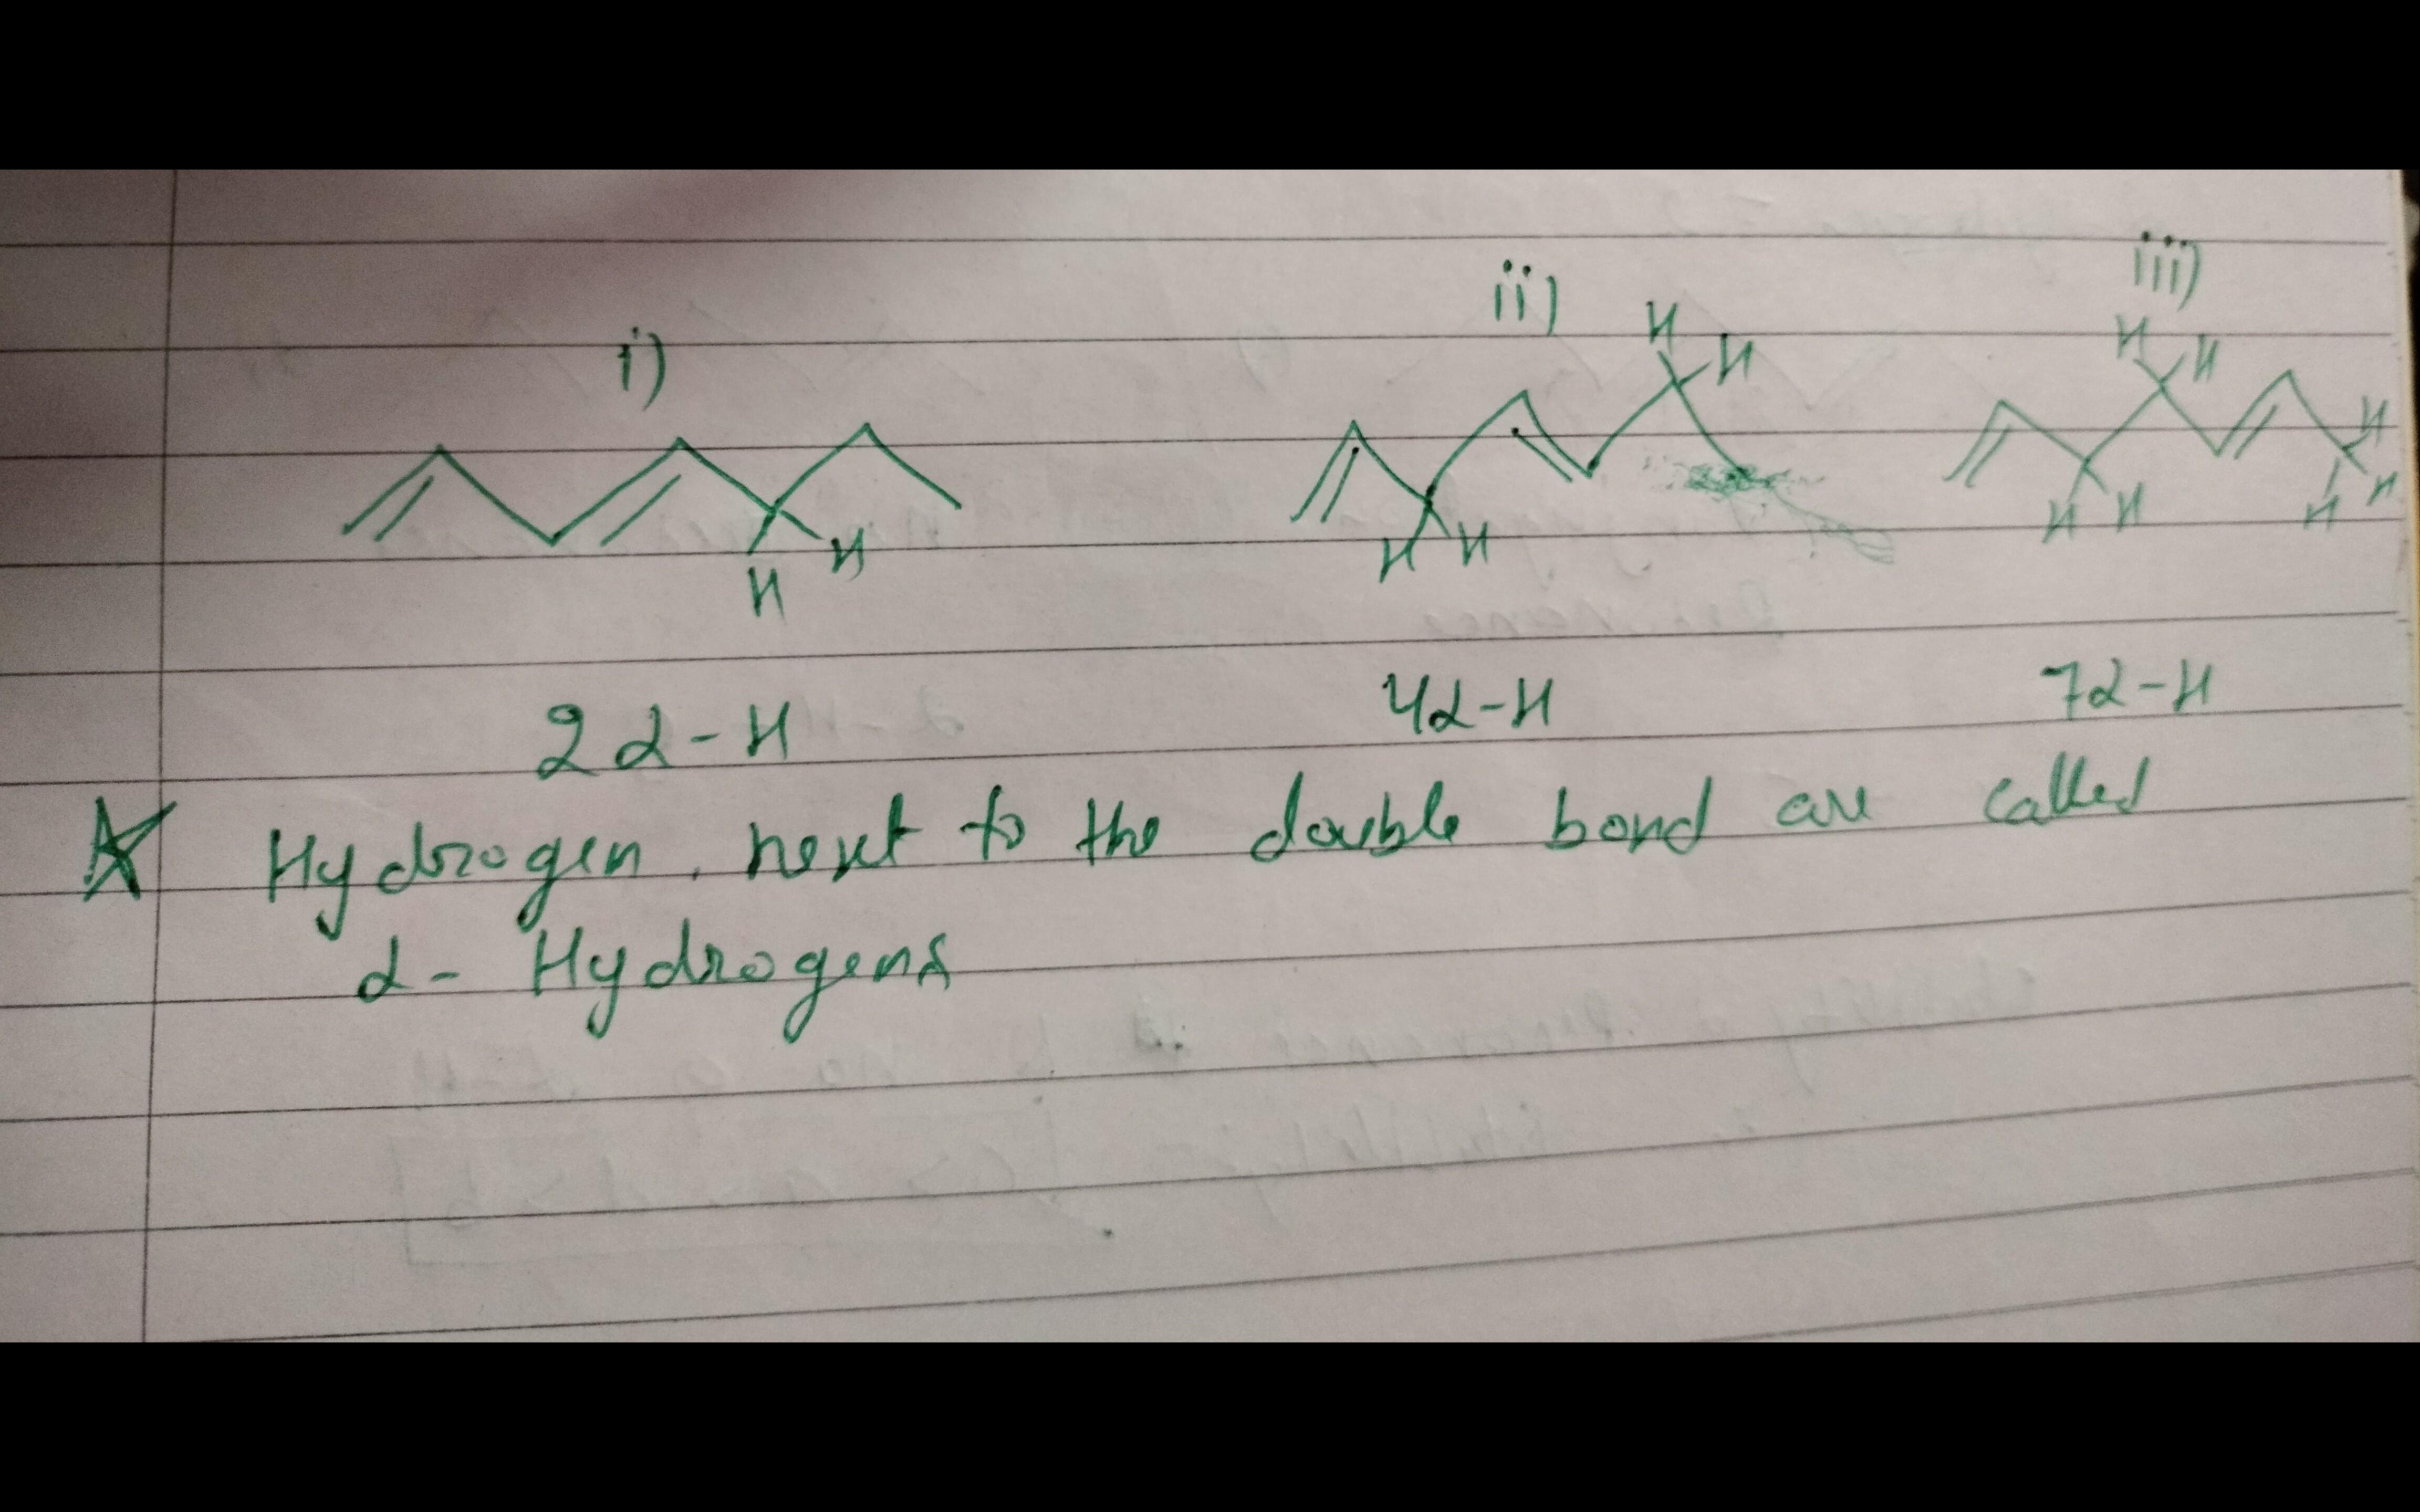 i)
ii)
iii)
H
H
H
H
H
H
H
H
H
H
H
H
H
2α-H
4α-H
7α-H
Hydrogen. next to the double bond are called
α- Hydrogens